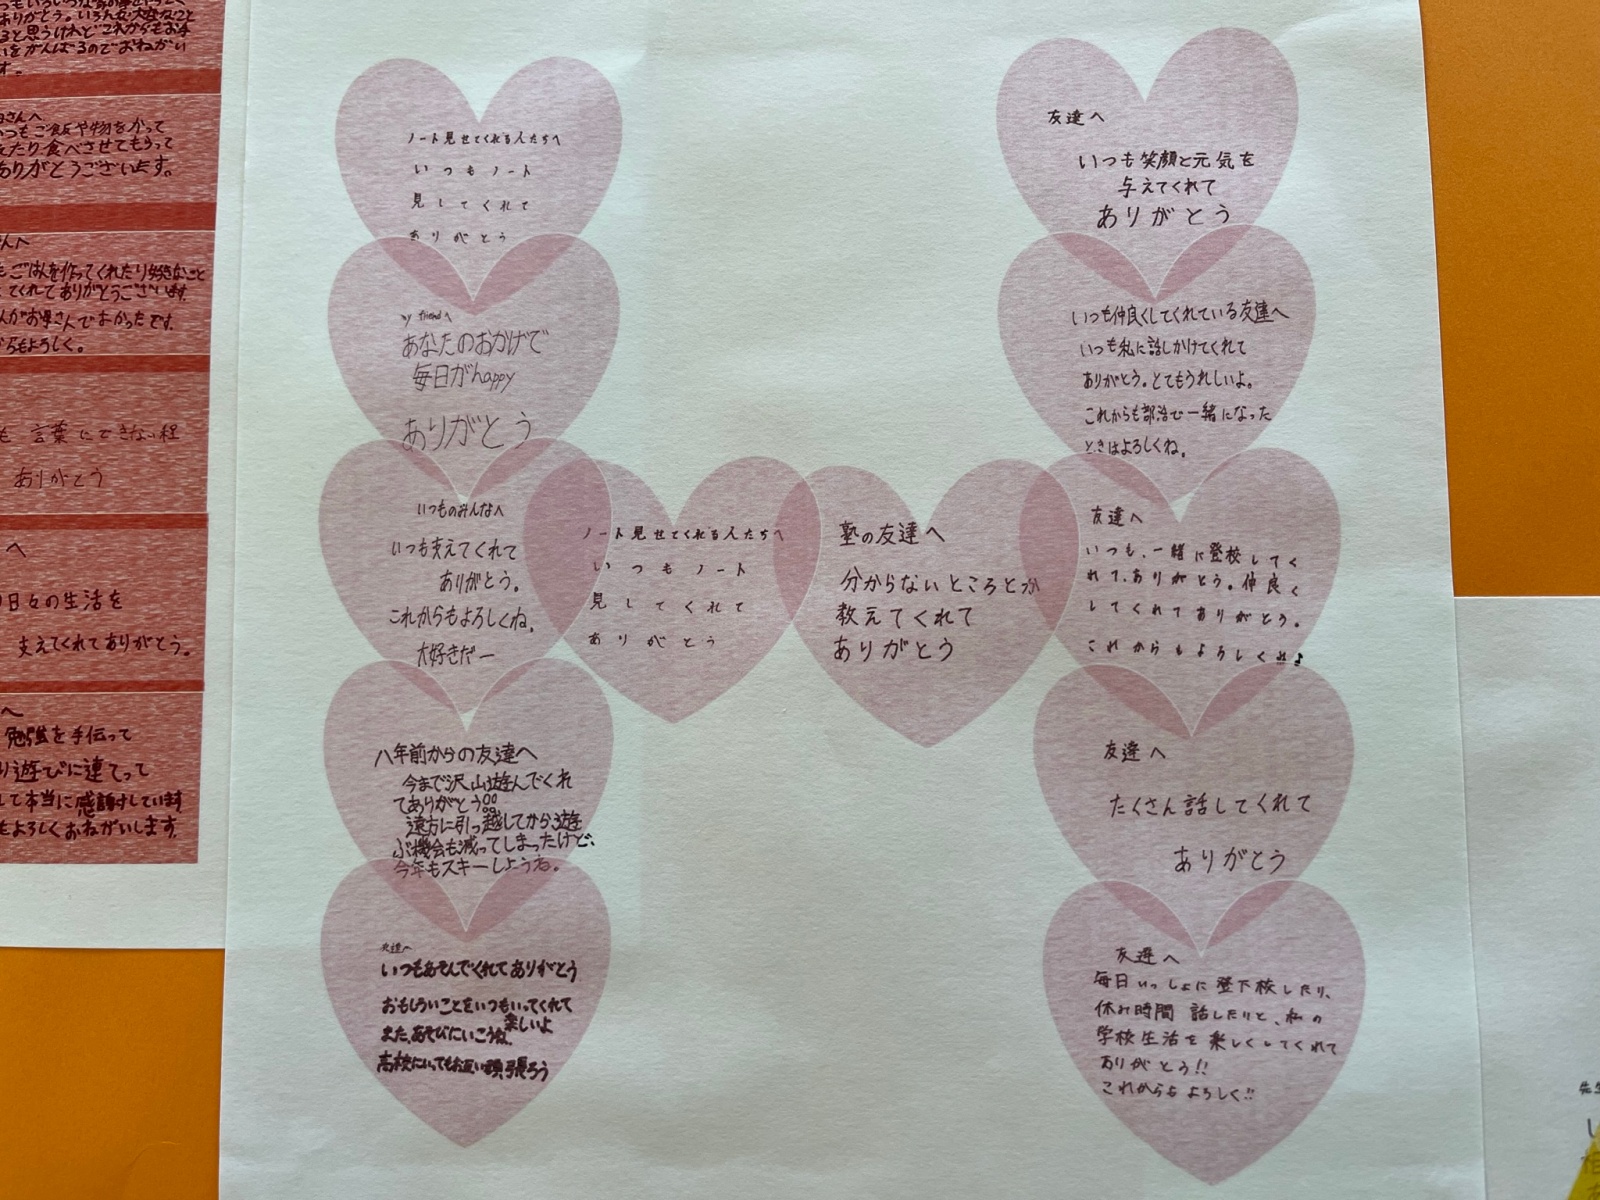 ありがとう。いろんな大変なこと
ると思うけれど これからもお手
いをがんばるのでおねがい
す。
さんへ
いつもご飯や物をかって
たり食べさせてもらって
ありがとうございます。
んへ
もごはんを作ってくれたり好きなこと
てくれてありがとうございます。
んがお母さんでよかったです。
らもよろしく。
も 言葉にできない程
ありがとう
へ
日々の生活を
支えてくれてありがとう。
へ
勉強を手伝って
り遊びに連てって
して本当に感謝しています
もよろしくおねがいします。
ノート見せてくれる人たちへ
いつもノート
見してくれて
ありがとう
My friendへ
あなたのおかげで
毎日がhappy
ありがとう
いつものみんなへ
いつも支えてくれて
ありがとう。
これからもよろしくね。
大好きだー
八年前からの友達へ
今まで沢山遊んでくれ
てありがとう!!
遠方に引っ越してから遊
ぶ機会も減ってしまったけど、
今年もスキーしようね。
友達へ
いつもあそんでくれてありがとう
おもしろいことをいつもいってくれて
楽しいよ
また、あそびにいこうね。
高校にいってもお互い頑張ろう
ノート見せてくれる人たちへ
いつもノート
見してくれて
ありがとう
塾の友達へ
分からないところとか
教えてくれて
ありがとう
友達へ
いつも笑顔と元気を
与えてくれて
ありがとう
いつも仲良くしてくれている友達へ
いつも私に話しかけてくれて
ありがとう。とてもうれしいよ。
これからも部活で一緒になった
ときはよろしくね。
友達へ
いつも、一緒に登校してく
れて、ありがとう。仲良く
してくれてありがとう。
これからもよろしくね♪
友達へ
たくさん話してくれて
ありがとう
友達へ
毎日いっしょに登下校したり、
休み時間 話したりと、私の
学校生活を楽しくしてくれて
ありがとう!!
これからもよろしく!!
先生